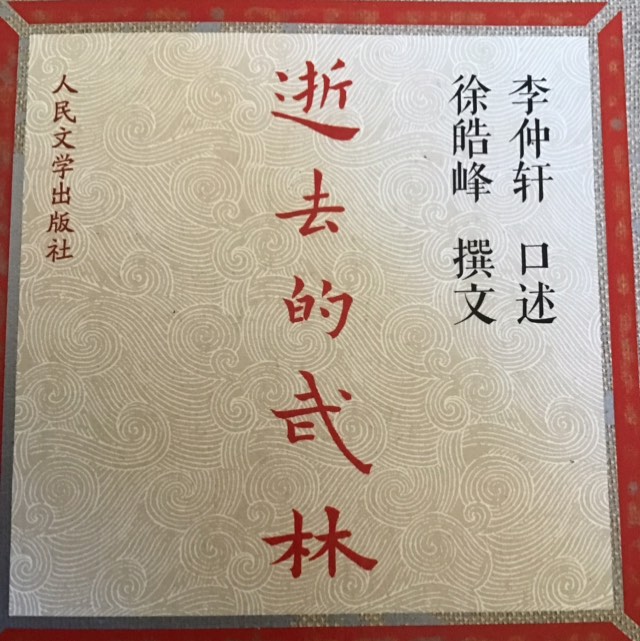 李仲轩 口述
徐皓峰 撰文
逝去的武林
人民文学出版社